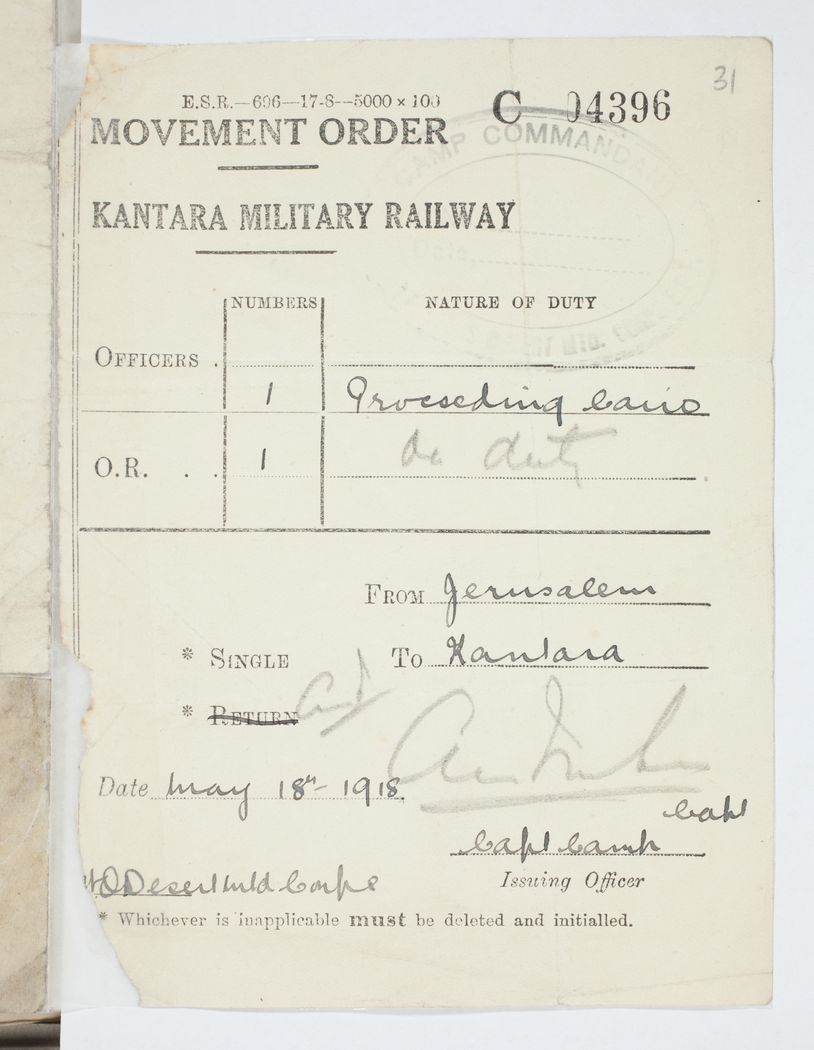 31
E.S.R.—696—17-8—5000 × 100
C 04396
MOVEMENT ORDER
CAMP COMMANDANT
KANTARA MILITARY RAILWAY
Date
NUMBERS NATURE OF DUTY
MTD.
OFFICERS .
1 Proceeding Cairo
O.R. . . 1 on duty
FROM Jerusalem
* SINGLE To Kantara
* RETURN
Date May 18th - 1918.
Capt
Capt Camp
HQ Desert Mtd Corps Issuing Officer
* Whichever is inapplicable must be deleted and initialled.